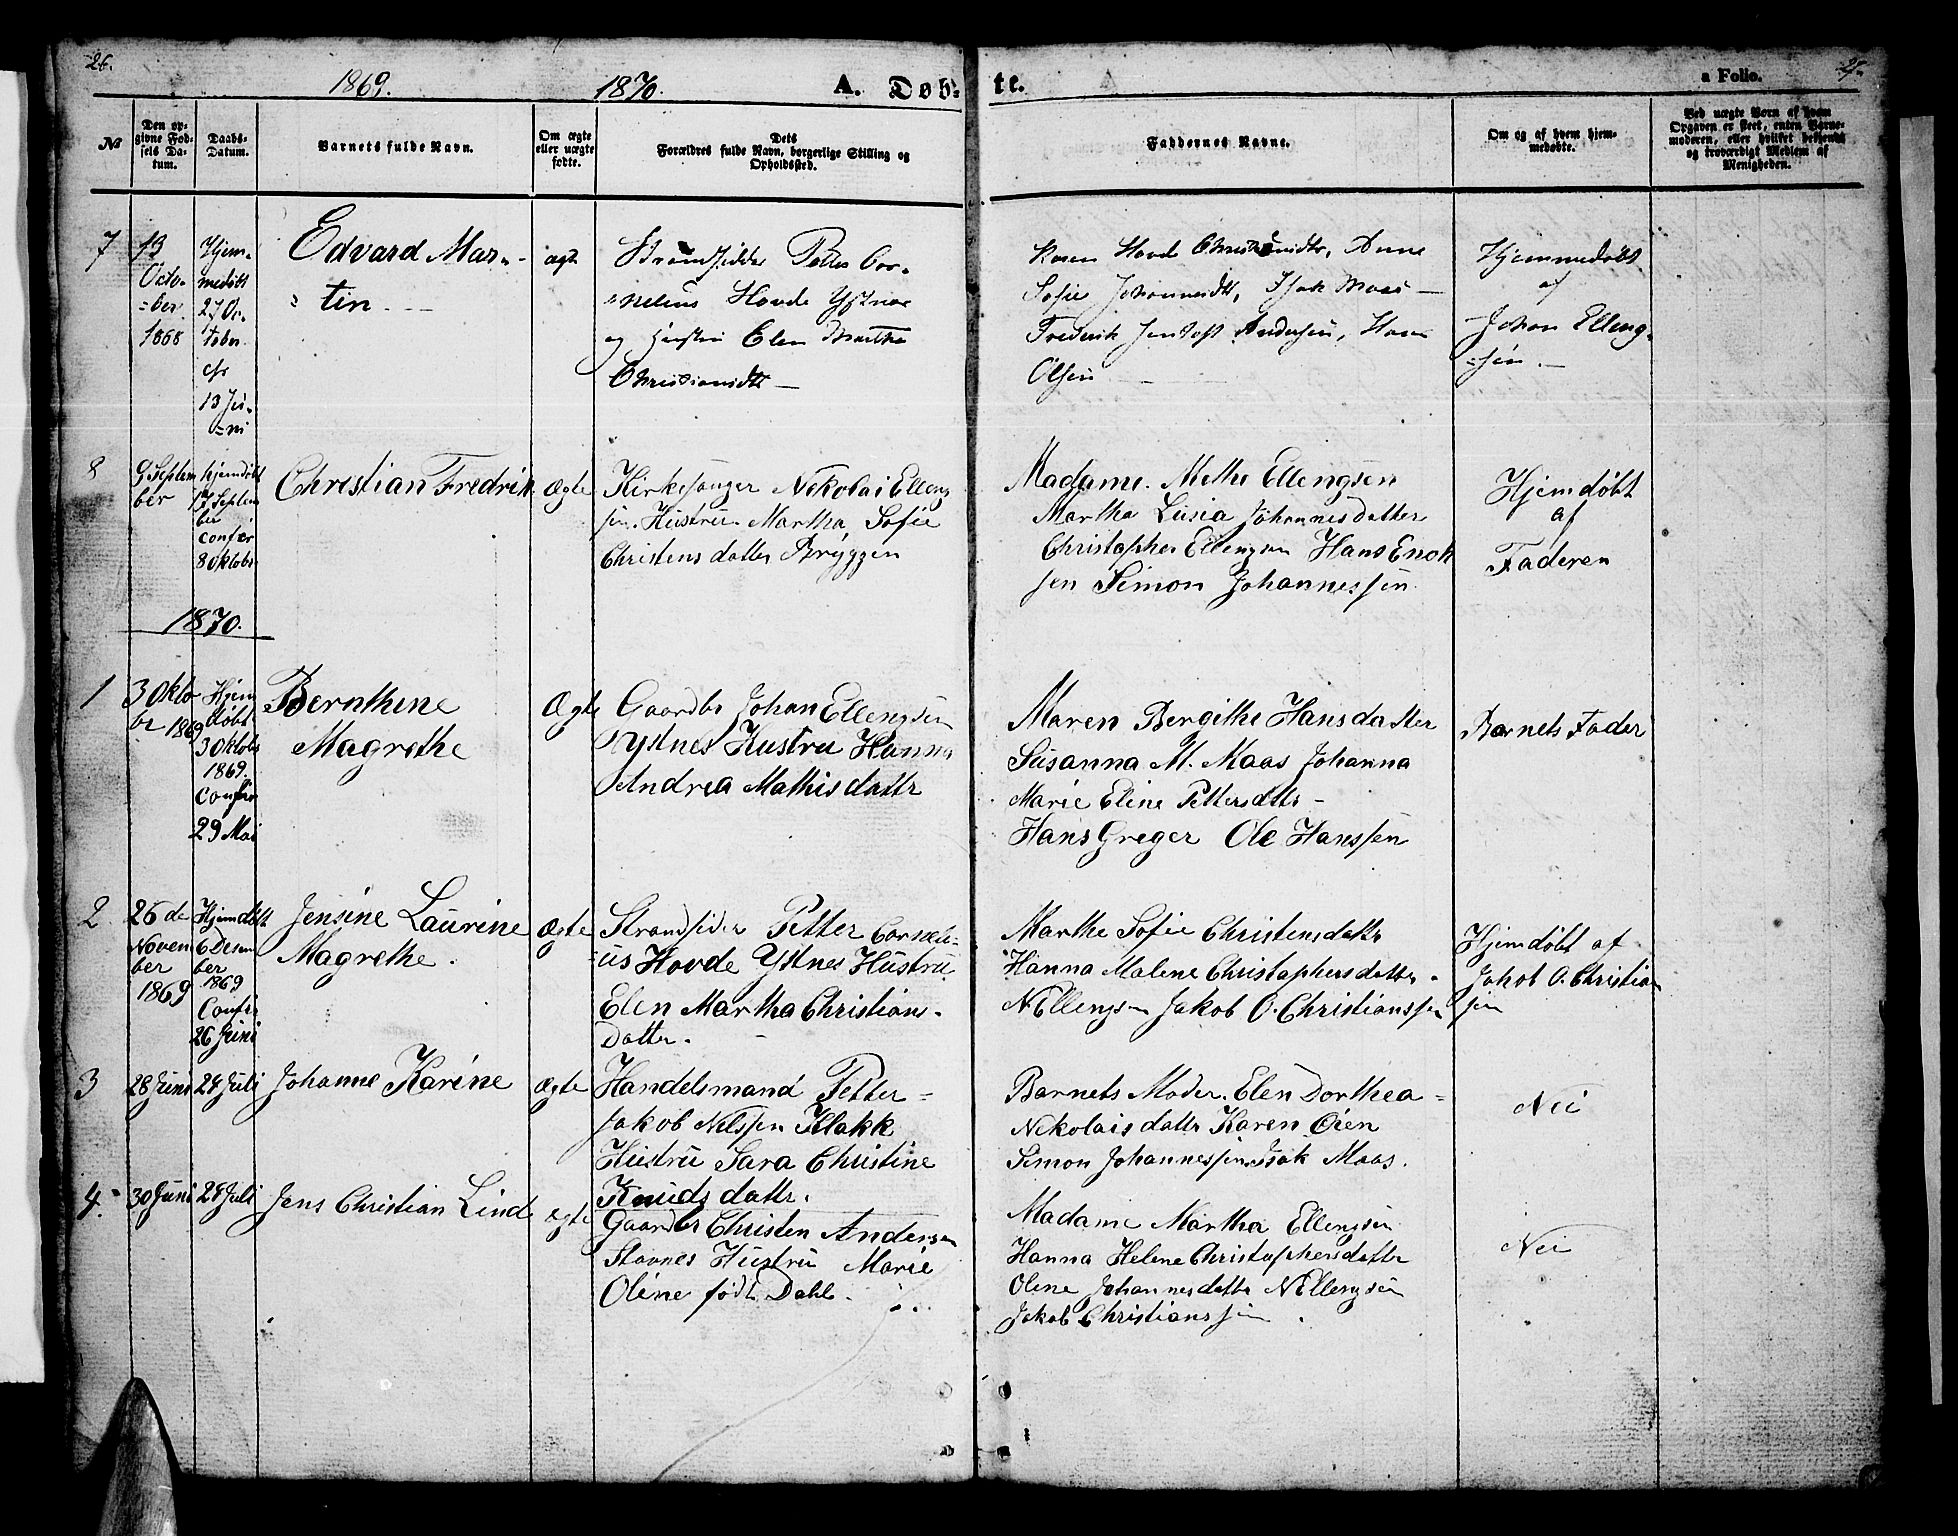 26.
1869.
1870.
A. Døb-
te.
a Folio.
27.
№
Den op-
givne Fød-
sels Da-
tum.
Daabs-
Datum.
Barnets fulde Navn.
Om ægte
eller uægte
fødte.
Dets
Forældres fulde Navn, borgerlige Stilling og
Opholdssted.
Faddernes Navne.
Om og af hvem hjem-
medøbte.
Ved uægte Børn af hvem
Opgaven er skeet, enten Barne-
moderen, eller hvilket bekjendt
og troværdigt Medlem af
Menigheden.
7
13
Octo-
=ber
1868
Hjem-
medøbt
27 Oc-
tober
cfr
13 Ju-
=ni
Edvard Mar-
tin
ægte
Strandsidder Petter Cor-
nelius Hovde Ystnæs
og Hustru Elen Martha
Christiansdtr
Karen Hovde Christiansdtr, Anne
Sofie Johannesdtr, Isak Maas
Frederik Jentoft Andersen, Hans
Olsen
Hjemmedøbt
af
Johan Elleng-
=sen.
8
9 Septem
ber
Hjemdøbt
17 Septem
ber
confer
8 Oktobr
Christian Fredrik
Ægte
Kirkesanger Nekolai Elleng
sen. Hustru. Martha Sofie
Christens datter Bryggen
Madame. Methe Ellengsen
Martha Lusia Johannesdatter
Christopher Ellengsen Hans Enok
sen Simon Johannessen
Hjemdøbt
af
Faderen
1870.
1
3 Okto
br 1869
Hjem
døbt
3 Oktobr
1869.
Confir
29 Mai
Bernthine
Magrethe
Ægte
Gaardbr Johan Ellengsen
Ystnes Hustru Hanna
Andrea Mathisdattr
Maren Bergithe Hansdatter
Susanna M. Maas Johanna
Marie Eline Pettersdattr -
Hans Greger Ole Hanssen
Barnets Fader
2
26 de
Novem
ber
1869
Hjemdøbt
6 Desem
ber
1869
Confir
26 Juni
Jensine Laurine
Magrethe.
Ægte
Strandsider Petter Corneli-
us Hovde Ystnes Hustru
Elen Martha Christians-
Datter.
Marthe Sofie Christensdattr
Hanna Malene Christophersdatter
N Ellengsen Jakob O. Christianssen
Hjemdøbt af
Jakob O. Christian
sen
3
28 Juni
24 Juli
Johanne Karine
ægte
Handelsmand Petter
Jakob Nilssen Klakk
Hustru Sara Christine
Knudsdattr.
Barnets Moder. Elen Dorthea
Nekolaisdattr Karen Øien
Simon Johannessen Isak Maas.
Nei
4.
30 Juni
24 Juli
Jens Christian Lind
ægte
Gaardbr Christen Andersen
Stavnes Hustru Marie
Oline født Dahl.
Madame Martha Ellengsen
Hanna Helene Christophersdattr
Oline Johannesdattr N Ellengsen
Jakob Christianssen
Nei